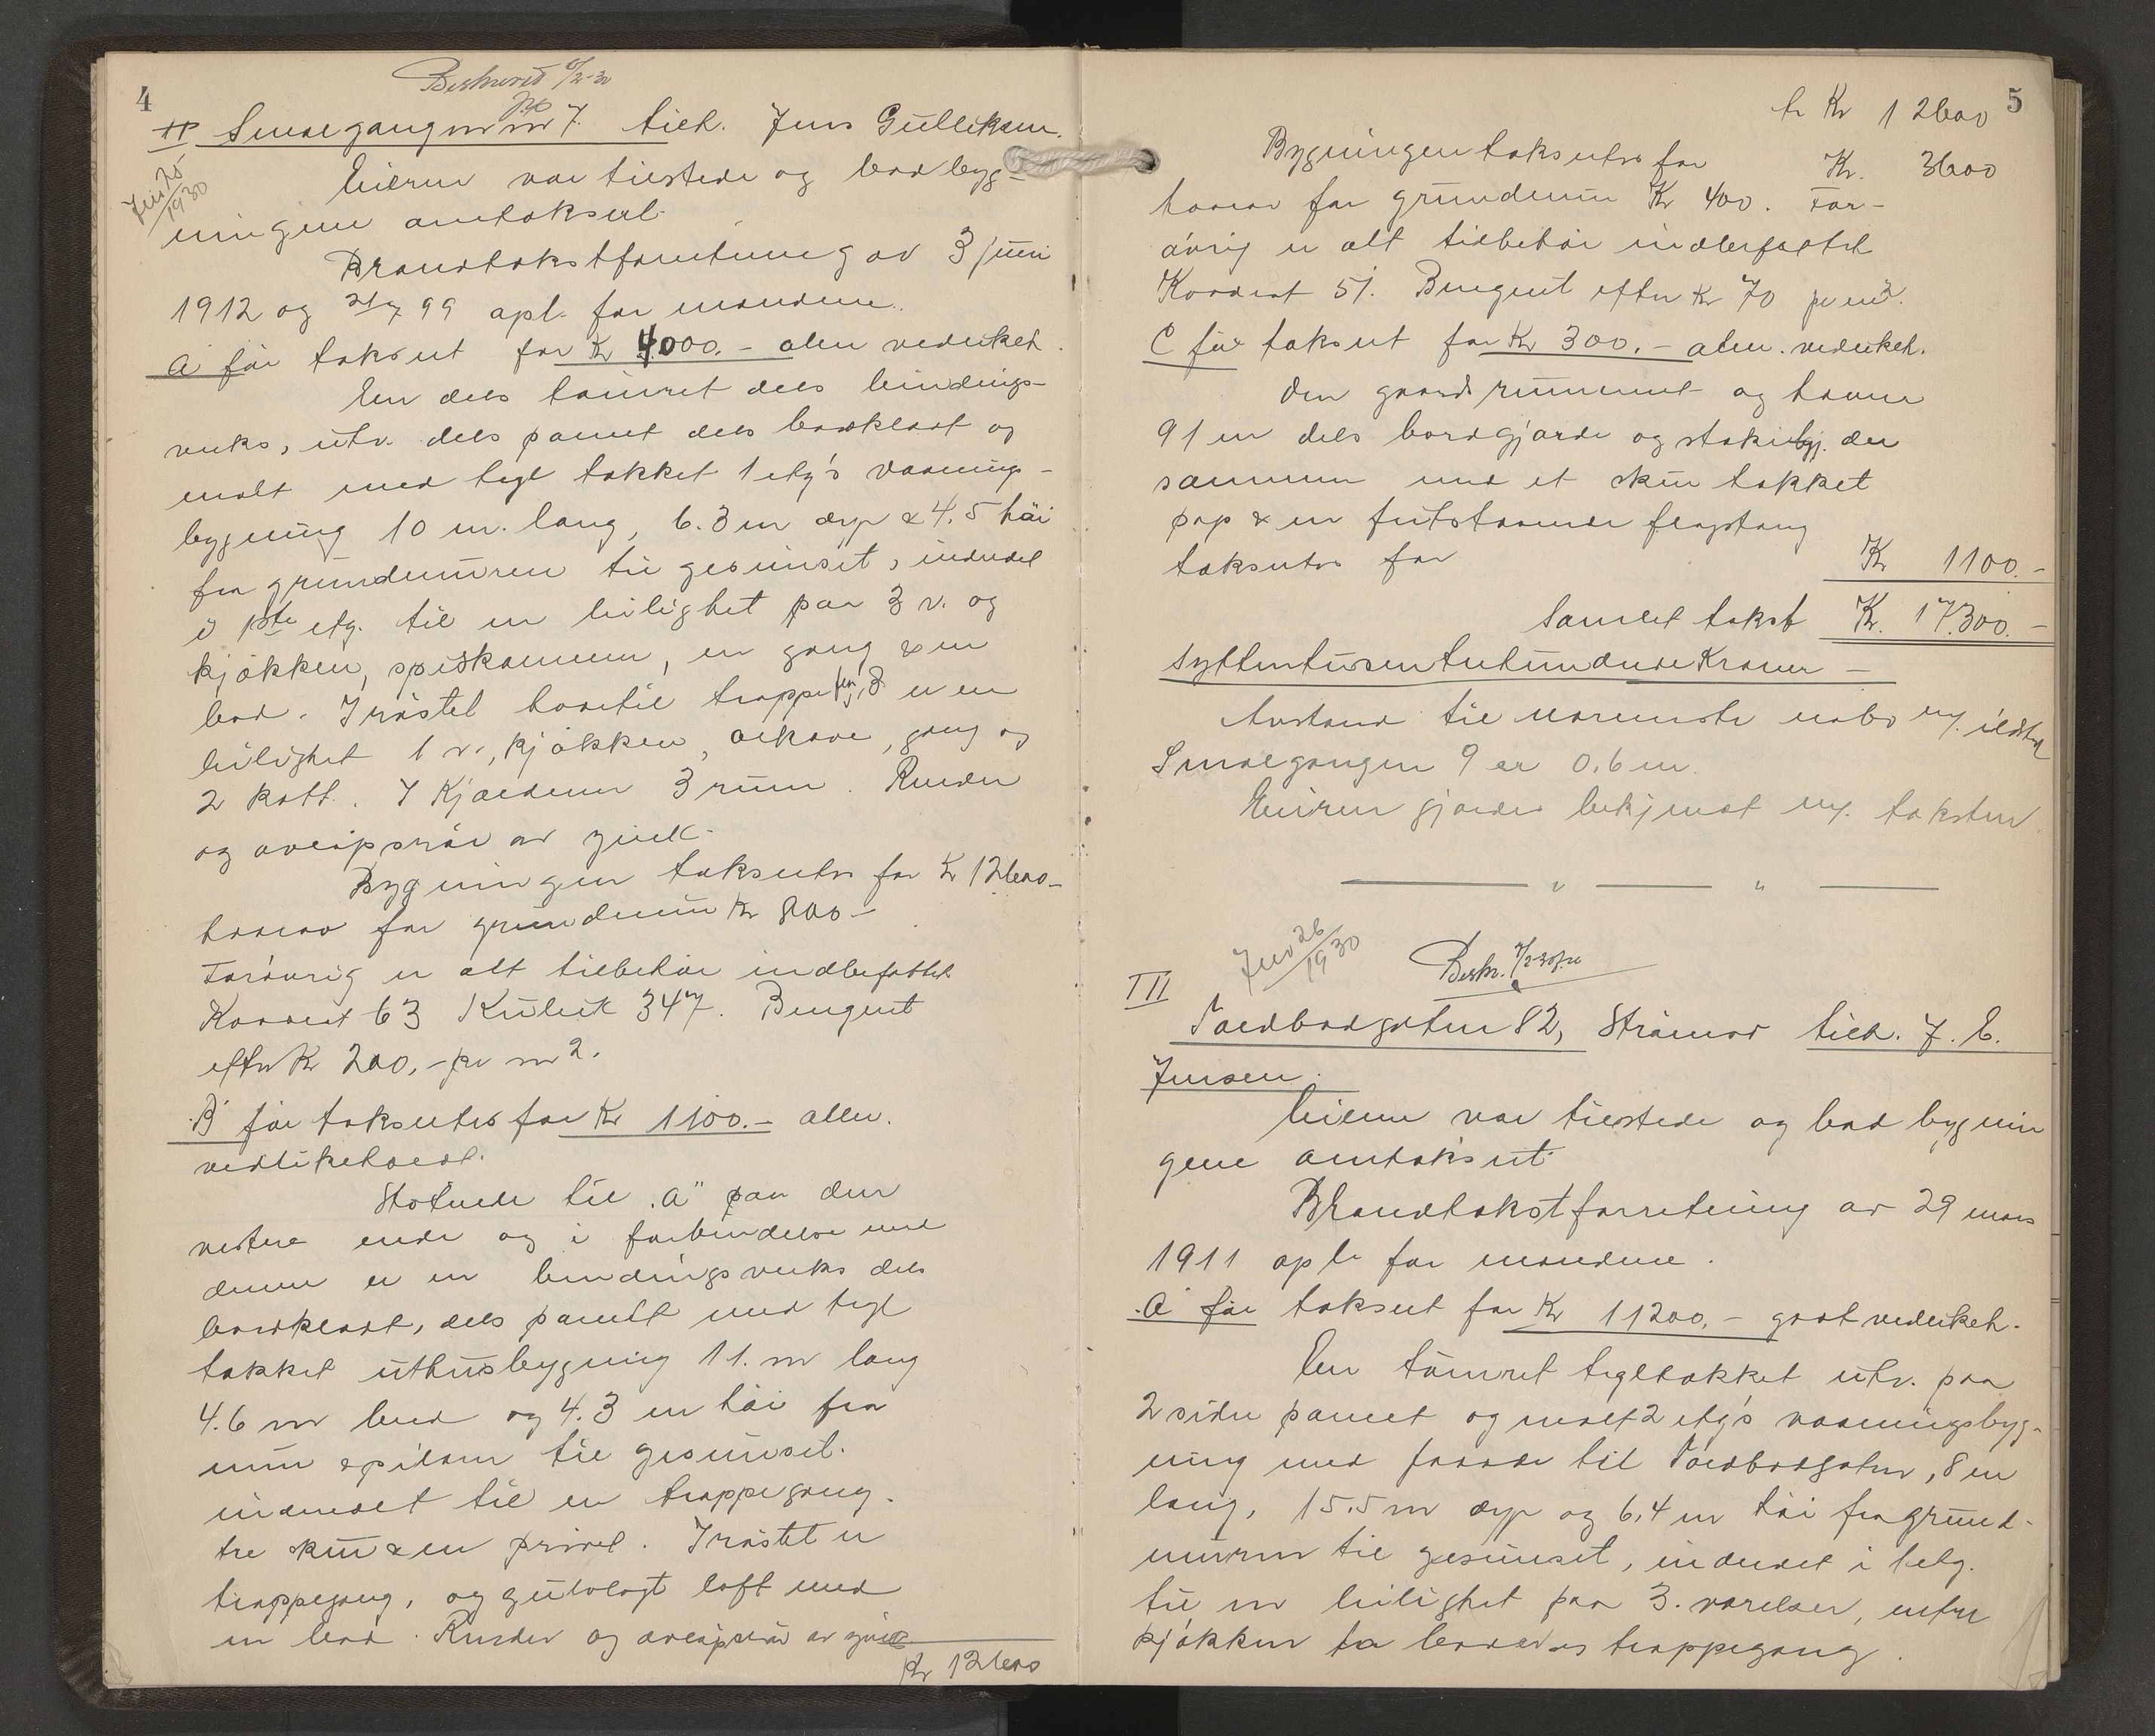 4
Beskrevet 6/2-30
II Smalgangen nr 7. tilh. Jens Gulliksen.
Jnr 25/1930
Eieren var tilstede og bad byg-
ningene omtaksert.
Brandtakstforretning av 3 juni
1912 og 21/7 99 opl. for mændene.
A før takseret for Kr 4000.- alm vedlikeh.
En dels tømret dels bindings-
verks, utv. dels panelt dels bordklædt og
malt med tegl tækket 1 etg's vaanings-
bygning 10 m. lang, 6.3 m dyp & 4.5 høi
fra grundmuren til gesimset, inddelt
i 1ste etg. til en leilighet paa 3 v. og
kjøkken, spiskammer, en gang & en
bod. I røstet hvortil trappe fra B er en
leilighet 1 v., kjøkken, alkove, gang og
2 kott. I Kjælderen 3 rum. Render
og avløpsrør av zink.
Bygningen takseres for Kr 12600-
hvorav for grundmur Kr 800-
Forøvrig er alt tilbehør indbefattet
Kvadrat 63 Kubik 347. Beregnet
efter Kr 200,- pr m2.
"B" før takseret for Kr 1100.- alm.
vedlikeholdt.
Støtende til "A" paa den
vestre ende og i forbindelse med
denne er en bindingsverks dels
bordklædt, dels panelt med tegl
tækket uthusbygning 11. m lang
4.6 m bred og 4.3 m høi fra
mur & pilarer til gesimset.
inddelt til en trappegang.
tre skur & en privet. I røstet er
trappegang, og gulvlagt loft med
en bod. Render og avløpsrør av zink
Kr 12600
5
tr Kr 12600
Bygningen takseres for Kr. 3600
hvorav for grundmur Kr 400. For-
øvrig er alt tilbehør indbefattet
Kvadrat 51. Beregnet efter Kr 70 pr m2.
C før taksert for Kr 300.- alm. vedlikeh.
Om gaardsrummet og haven
91 m dels bordgjærde og stakitgj. der
sammen med et skur tækket
pap & en fritstaaende flagstang
takseres for Kr 1100.-
Samlet takst Kr. 17.300.-
Syttentusentrehundrede Kroner -
Avstand til nærmeste nabo m/ ildsted
Smalgangen 9 er 0.6 m.
Eieren gjordes bekjendt m/ taksten.
Jnr 26/1930
Beskr. 7/2-30
III
Toldbodgaten 82, Strømsø tilh. J. E.
Jensen.
Eieren var tilstede og bad bygnin
gene omtaksert.
Brandtakstforretning av 29 mars
1911 opl. for mændene.
"A" før taksert for Kr 11200.- godt vedlikeh.
En tømret tegltækket utv. paa
2 sider panelt og malt 2 etg's vaaningsbyg-
ning med facade til Toldbodgaten, 8 m
lang, 15.5 m dyp og 6.4 m høi fra grund-
muren til gesimset, inddelt i 1 etg.
til en leilighet paa 3. værelser, entre
kjøkken to boder & trappegang.